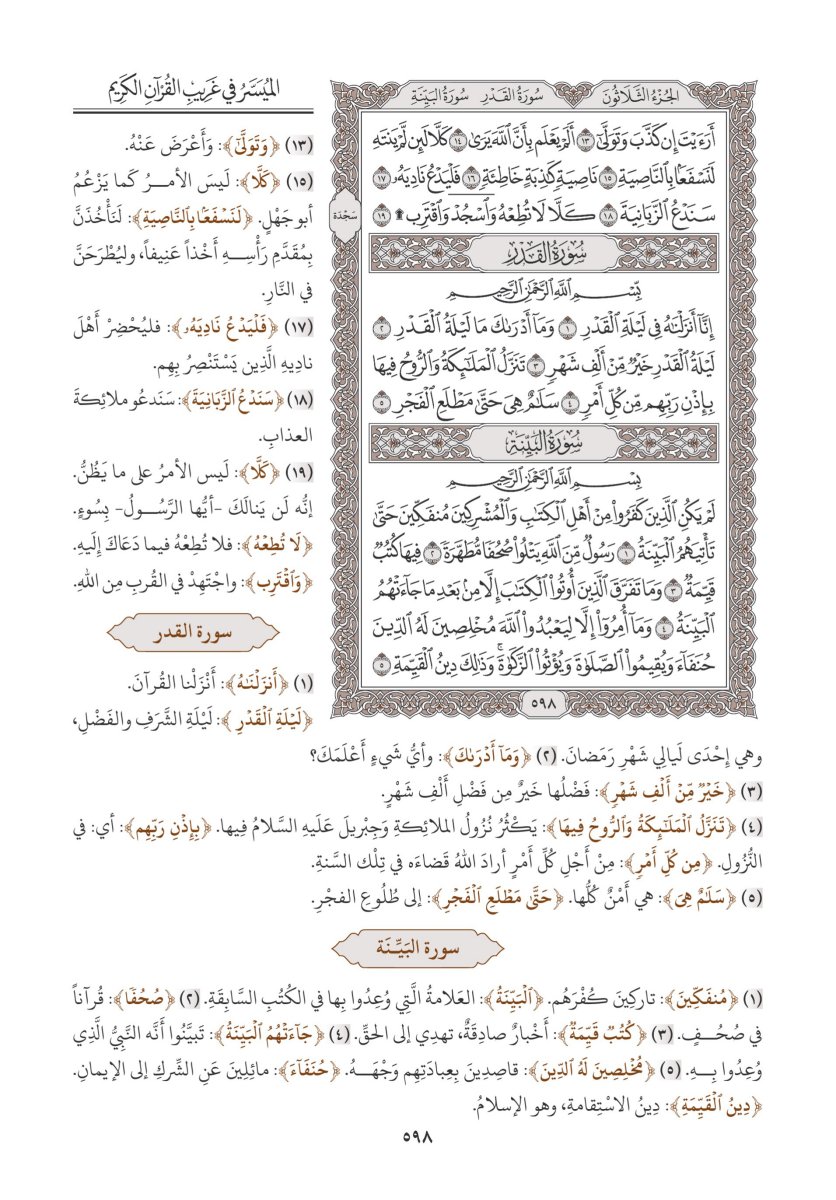 الميُسَّرُ في غَرِيبِ القُرْآنِ الكَرِيم
الجُزءُ الثَّلَاثُونَ سُورَةُ القَدْرِ سُورَةُ البَيِّنَةِ
أَرَءَيۡتَ إِن كَذَّبَ وَتَوَلَّىٰٓ ١٣ أَلَمۡ يَعۡلَم بِأَنَّ ٱللَّهَ يَرَىٰ ١٤ كَلَّا لَئِن لَّمۡ يَنتَهِ
لَنَسۡفَعَۢا بِٱلنَّاصِيَةِ ١٥ نَاصِيَةٖ كَٰذِبَةٍ خَاطِئَةٖ ١٦ فَلۡيَدۡعُ نَادِيَهُۥ ١٧
سَنَدۡعُ ٱلزَّبَانِيَةَ ١٨ كَلَّا لَا تُطِعۡهُ وَٱسۡجُدۡۤ وَٱقۡتَرِب ۩ ١٩
سَجْدَة
سُورَةُ القَدْرِ
بِسۡمِ ٱللَّهِ ٱلرَّحۡمَٰنِ ٱلرَّحِيمِ
إِنَّآ أَنزَلۡنَٰهُ فِي لَيۡلَةِ ٱلۡقَدۡرِ ١ وَمَآ أَدۡرَىٰكَ مَا لَيۡلَةُ ٱلۡقَدۡرِ ٢
لَيۡلَةُ ٱلۡقَدۡرِ خَيۡرٞ مِّنۡ أَلۡفِ شَهۡرٖ ٣ تَنَزَّلُ ٱلۡمَلَٰٓئِكَةُ وَٱلرُّوحُ فِيهَا
بِإِذۡنِ رَبِّهِم مِّن كُلِّ أَمۡرٖ ٤ سَلَٰمٌ هِيَ حَتَّىٰ مَطۡلَعِ ٱلۡفَجۡرِ ٥
سُورَةُ البَيِّنَةِ
بِسۡمِ ٱللَّهِ ٱلرَّحۡمَٰنِ ٱلرَّحِيمِ
لَمۡ يَكُنِ ٱلَّذِينَ كَفَرُواْ مِنۡ أَهۡلِ ٱلۡكِتَٰبِ وَٱلۡمُشۡرِكِينَ مُنفَكِّينَ حَتَّىٰ
تَأۡتِيَهُمُ ٱلۡبَيِّنَةُ ١ رَسُولٞ مِّنَ ٱللَّهِ يَتۡلُواْ صُحُفٗا مُّطَهَّرَةٗ ٢ فِيهَا كُتُبٞ
قَيِّمَةٞ ٣ وَمَا تَفَرَّقَ ٱلَّذِينَ أُوتُواْ ٱلۡكِتَٰبَ إِلَّا مِنۢ بَعۡدِ مَا جَآءَتۡهُمُ
ٱلۡبَيِّنَةُ ٤ وَمَآ أُمِرُوٓاْ إِلَّا لِيَعۡبُدُواْ ٱللَّهَ مُخۡلِصِينَ لَهُ ٱلدِّينَ
حُنَفَآءَ وَيُقِيمُواْ ٱلصَّلَوٰةَ وَيُؤۡتُواْ ٱلزَّكَوٰةَۚ وَذَٰلِكَ دِينُ ٱلۡقَيِّمَةِ ٥
٥٩٨
(١٣) ﴿وَتَوَلَّىٰٓ﴾: وَأَعْرَضَ عَنْهُ.
(١٥) ﴿كَلَّا﴾: لَيسَ الأمرُ كَما يَزْعُمُ
أبو جَهْلٍ. ﴿لَنَسۡفَعَۢا بِٱلنَّاصِيَةِ﴾: لَنَأْخُذَنَّ
بِمُقَدَّمِ رَأْسِهِ أَخْذاً عَنِيفاً، وليُطْرَحَنَّ
في النَّارِ.
(١٧) ﴿فَلۡيَدۡعُ نَادِيَهُۥ﴾: فليُحْضِرْ أَهْلَ
نادِيهِ الَّذِين يَسْتَنْصِرُ بِهِم.
(١٨) ﴿سَنَدۡعُ ٱلزَّبَانِيَةَ﴾: سَنَدعُو ملائِكةَ
العذابِ.
(١٩) ﴿كَلَّا﴾: لَيس الأمرُ على ما يَظُنُّ.
إنَّه لَن يَنالَكَ -أيُّها الرَّسُولُ- بِسُوءٍ.
﴿لَا تُطِعۡهُ﴾: فلا تُطِعْهُ فيما دَعَاكَ إِلَيهِ.
﴿وَٱقۡتَرِب﴾: واجْتَهِدْ في القُربِ مِن اللهِ.
سورة القدر
(١) ﴿أَنزَلۡنَٰهُ﴾: أَنْزَلْنا القُرآنَ.
﴿لَيۡلَةِ ٱلۡقَدۡرِ﴾: لَيْلَةِ الشَّرَفِ والفَضْلِ،
وهي إِحْدَى لَيالِي شَهْرِ رَمَضانَ. (٢) ﴿وَمَآ أَدۡرَىٰكَ﴾: وأيُّ شَيءٍ أَعْلَمَكَ؟
(٣) ﴿خَيۡرٞ مِّنۡ أَلۡفِ شَهۡرٖ﴾: فَضْلُها خَيرٌ مِن فَضْلِ أَلْفِ شَهْرٍ.
(٤) ﴿تَنَزَّلُ ٱلۡمَلَٰٓئِكَةُ وَٱلرُّوحُ فِيهَا﴾: يَكْثُرُ نُزُولُ الملائِكةِ وَجِبْرِيلَ عَلَيهِ السَّلامُ فِيها. ﴿بِإِذۡنِ رَبِّهِم﴾: أي: في
النُّزُولِ. ﴿مِن كُلِّ أَمۡرٖ﴾: مِنْ أَجْلِ كُلِّ أَمْرٍ أرادَ اللهُ قضاءَه في تِلْك السَّنةِ.
(٥) ﴿سَلَٰمٌ هِيَ﴾: هي أَمْنٌ كُلُّها. ﴿حَتَّىٰ مَطۡلَعِ ٱلۡفَجۡرِ﴾: إلى طُلُوعِ الفجْرِ.
سورة البَيِّنَة
(١) ﴿مُنفَكِّينَ﴾: تارِكِينَ كُفْرَهُم. ﴿ٱلۡبَيِّنَةُ﴾: العَلامةُ الَّتِي وُعِدُوا بِها في الكُتُبِ السَّابِقَةِ. (٢) ﴿صُحُفٗا﴾: قُرآناً
في صُحُفٍ. (٣) ﴿كُتُبٞ قَيِّمَةٞ﴾: أَخْبارٌ صادِقَةٌ، تهدِي إلى الحقِّ. (٤) ﴿جَآءَتۡهُمُ ٱلۡبَيِّنَةُ﴾: تَبيَّنُوا أَنَّه النَّبِيُّ الَّذِي
وُعِدُوا بِهِ. (٥) ﴿مُخۡلِصِينَ لَهُ ٱلدِّينَ﴾: قاصِدِينَ بِعِبادَتِهِم وَجْهَهُ. ﴿حُنَفَآءَ﴾: مائِلِينَ عَنِ الشِّركِ إلى الإيمانِ.
﴿دِينُ ٱلۡقَيِّمَةِ﴾: دِينُ الاسْتِقامةِ، وهو الإسلامُ.
٥٩٨